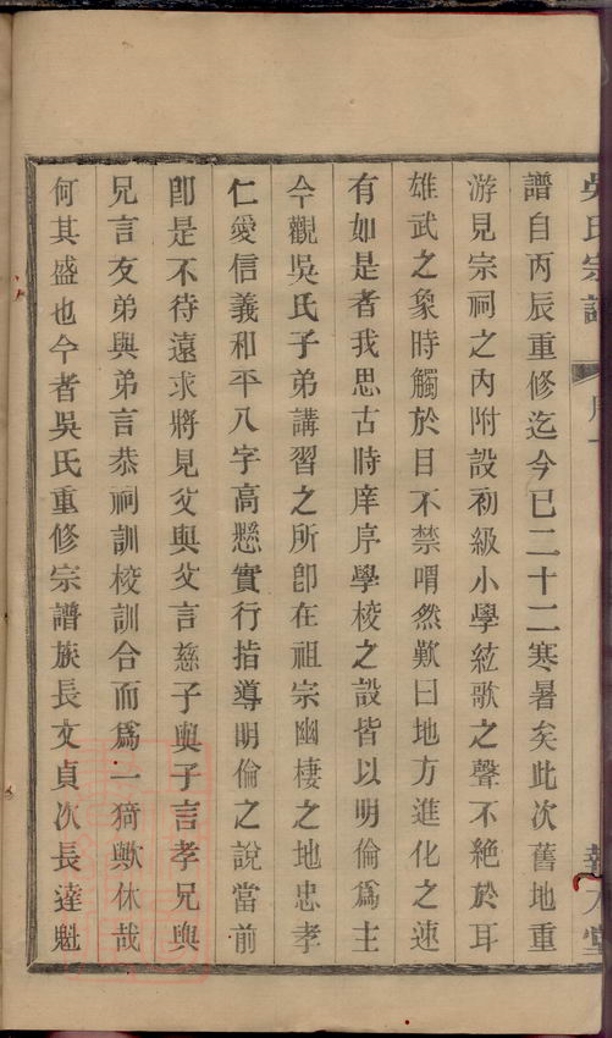 吳氏宗譜 序 一
譜自丙辰重修迄今已二十二寒暑矣此次舊地重
游見宗祠之內附設初級小學絃歌之聲不絕於耳
雄武之象時觸於目不禁喟然歎曰地方進化之速
有如是者我思古時庠序學校之設皆以明倫爲主
今觀吳氏子弟講習之所卽在祖宗幽棲之地忠孝
仁愛信義和平八字高懸實行指導明倫之說當前
卽是不待遠求將見父與父言慈子與子言孝兄與
兄言友弟與弟言恭祠訓校訓合而爲一猗歟休哉
何其盛也今者吳氏重修宗譜族長文貞次長達魁